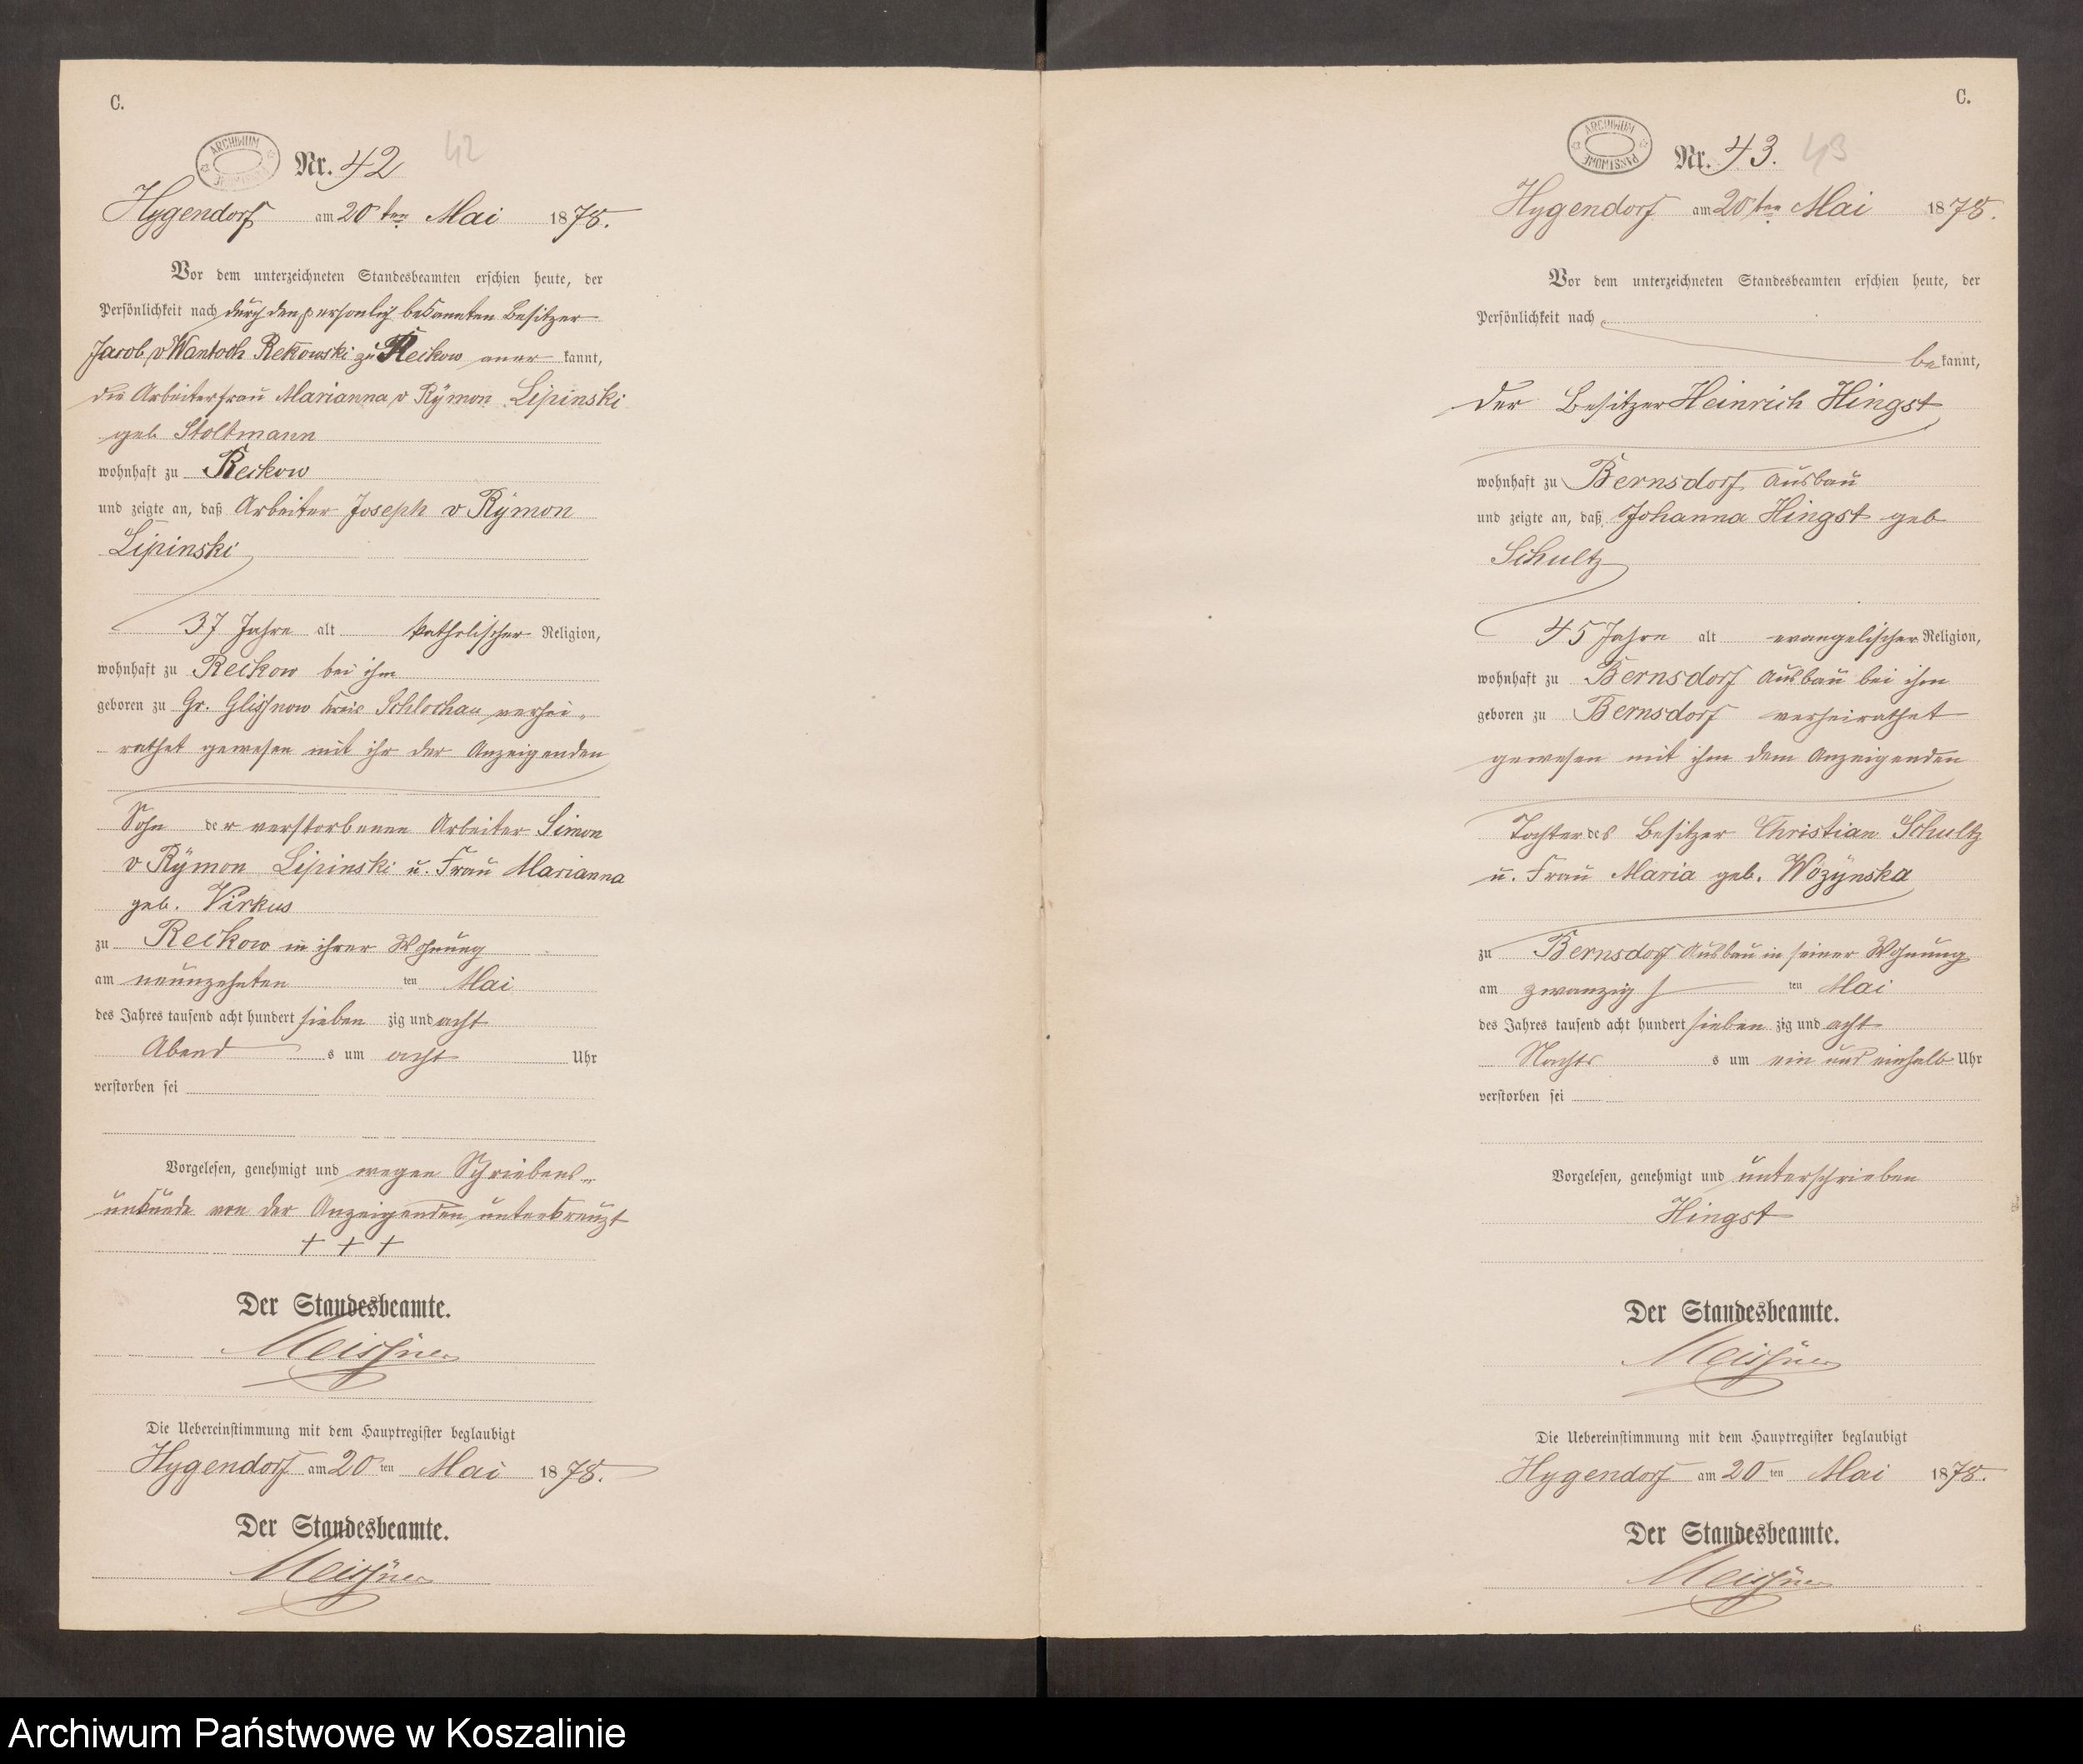 C.
ARCHIWUM PAŃSTWOWE
Nr. 42
42
Hygendorf am 20 ten Mai 1878.
Vor dem unterzeichneten Standesbeamten erschien heute, der
Persönlichkeit nach durch den persönlich bekannten Besitzer
Jacob v Wantoch Rekowski zu Reckow aner kannt,
die Arbeiterfrau Marianna v Rÿmon Lipinski
geb Stoltmann
wohnhaft zu Reckow
und zeigte an, daß Arbeiter Joseph v Rÿmon
Lipinski
37 Jahre alt katholischer Religion,
wohnhaft zu Reckow bei ihm
geboren zu Gr. Glissnow Kreis Schlochau verhei-
rathet gewesen mit ihr der Anzeigenden
Sohn der verstorbenen Arbeiter Simon
v Rÿmon Lipinski u. Frau Marianna
geb. Virkus
zu Reckow in ihrer Wohnung
am neunzehnten ten Mai
des Jahres tausend acht hundert sieben zig und acht
Abend s um acht Uhr
verstorben sei
Vorgelesen, genehmigt und wegen Schreibens-
unkunde von der Anzeigenden unterkreuzt
+ + +
Der Standesbeamte.
Meissner
Die Uebereinstimmung mit dem Hauptregister beglaubigt
Hygendorf am 20 ten Mai 1878.
Der Standesbeamte.
Meissner
C.
ARCHIWUM PAŃSTWOWE
Nr. 43.
43
Hygendorf am 20 ten Mai 1878.
Vor dem unterzeichneten Standesbeamten erschien heute, der
Persönlichkeit nach
be kannt,
der Besitzer Heinrich Hingst
wohnhaft zu Bernsdorf Ausbau
und zeigte an, daß Johanna Hingst geb
Schultz
45 Jahre alt evangelischer Religion,
wohnhaft zu Bernsdorf Ausbau bei ihm
geboren zu Bernsdorf verheirathet
gewesen mit ihm dem Anzeigenden
Tochter des Besitzer Christian Schultz
u. Frau Maria geb. Wözÿnska
zu Bernsdorf Ausbau in seiner Wohnung
am zwanzigs ten Mai
des Jahres tausend acht hundert sieben zig und acht
Nachts s um ein und einhalb Uhr
verstorben sei
Vorgelesen, genehmigt und unterschrieben
Hingst
Der Standesbeamte.
Meissner
Die Uebereinstimmung mit dem Hauptregister beglaubigt
Hygendorf am 20 ten Mai 1878.
Der Standesbeamte.
Meissner
6
Archiwum Państwowe w Koszalinie